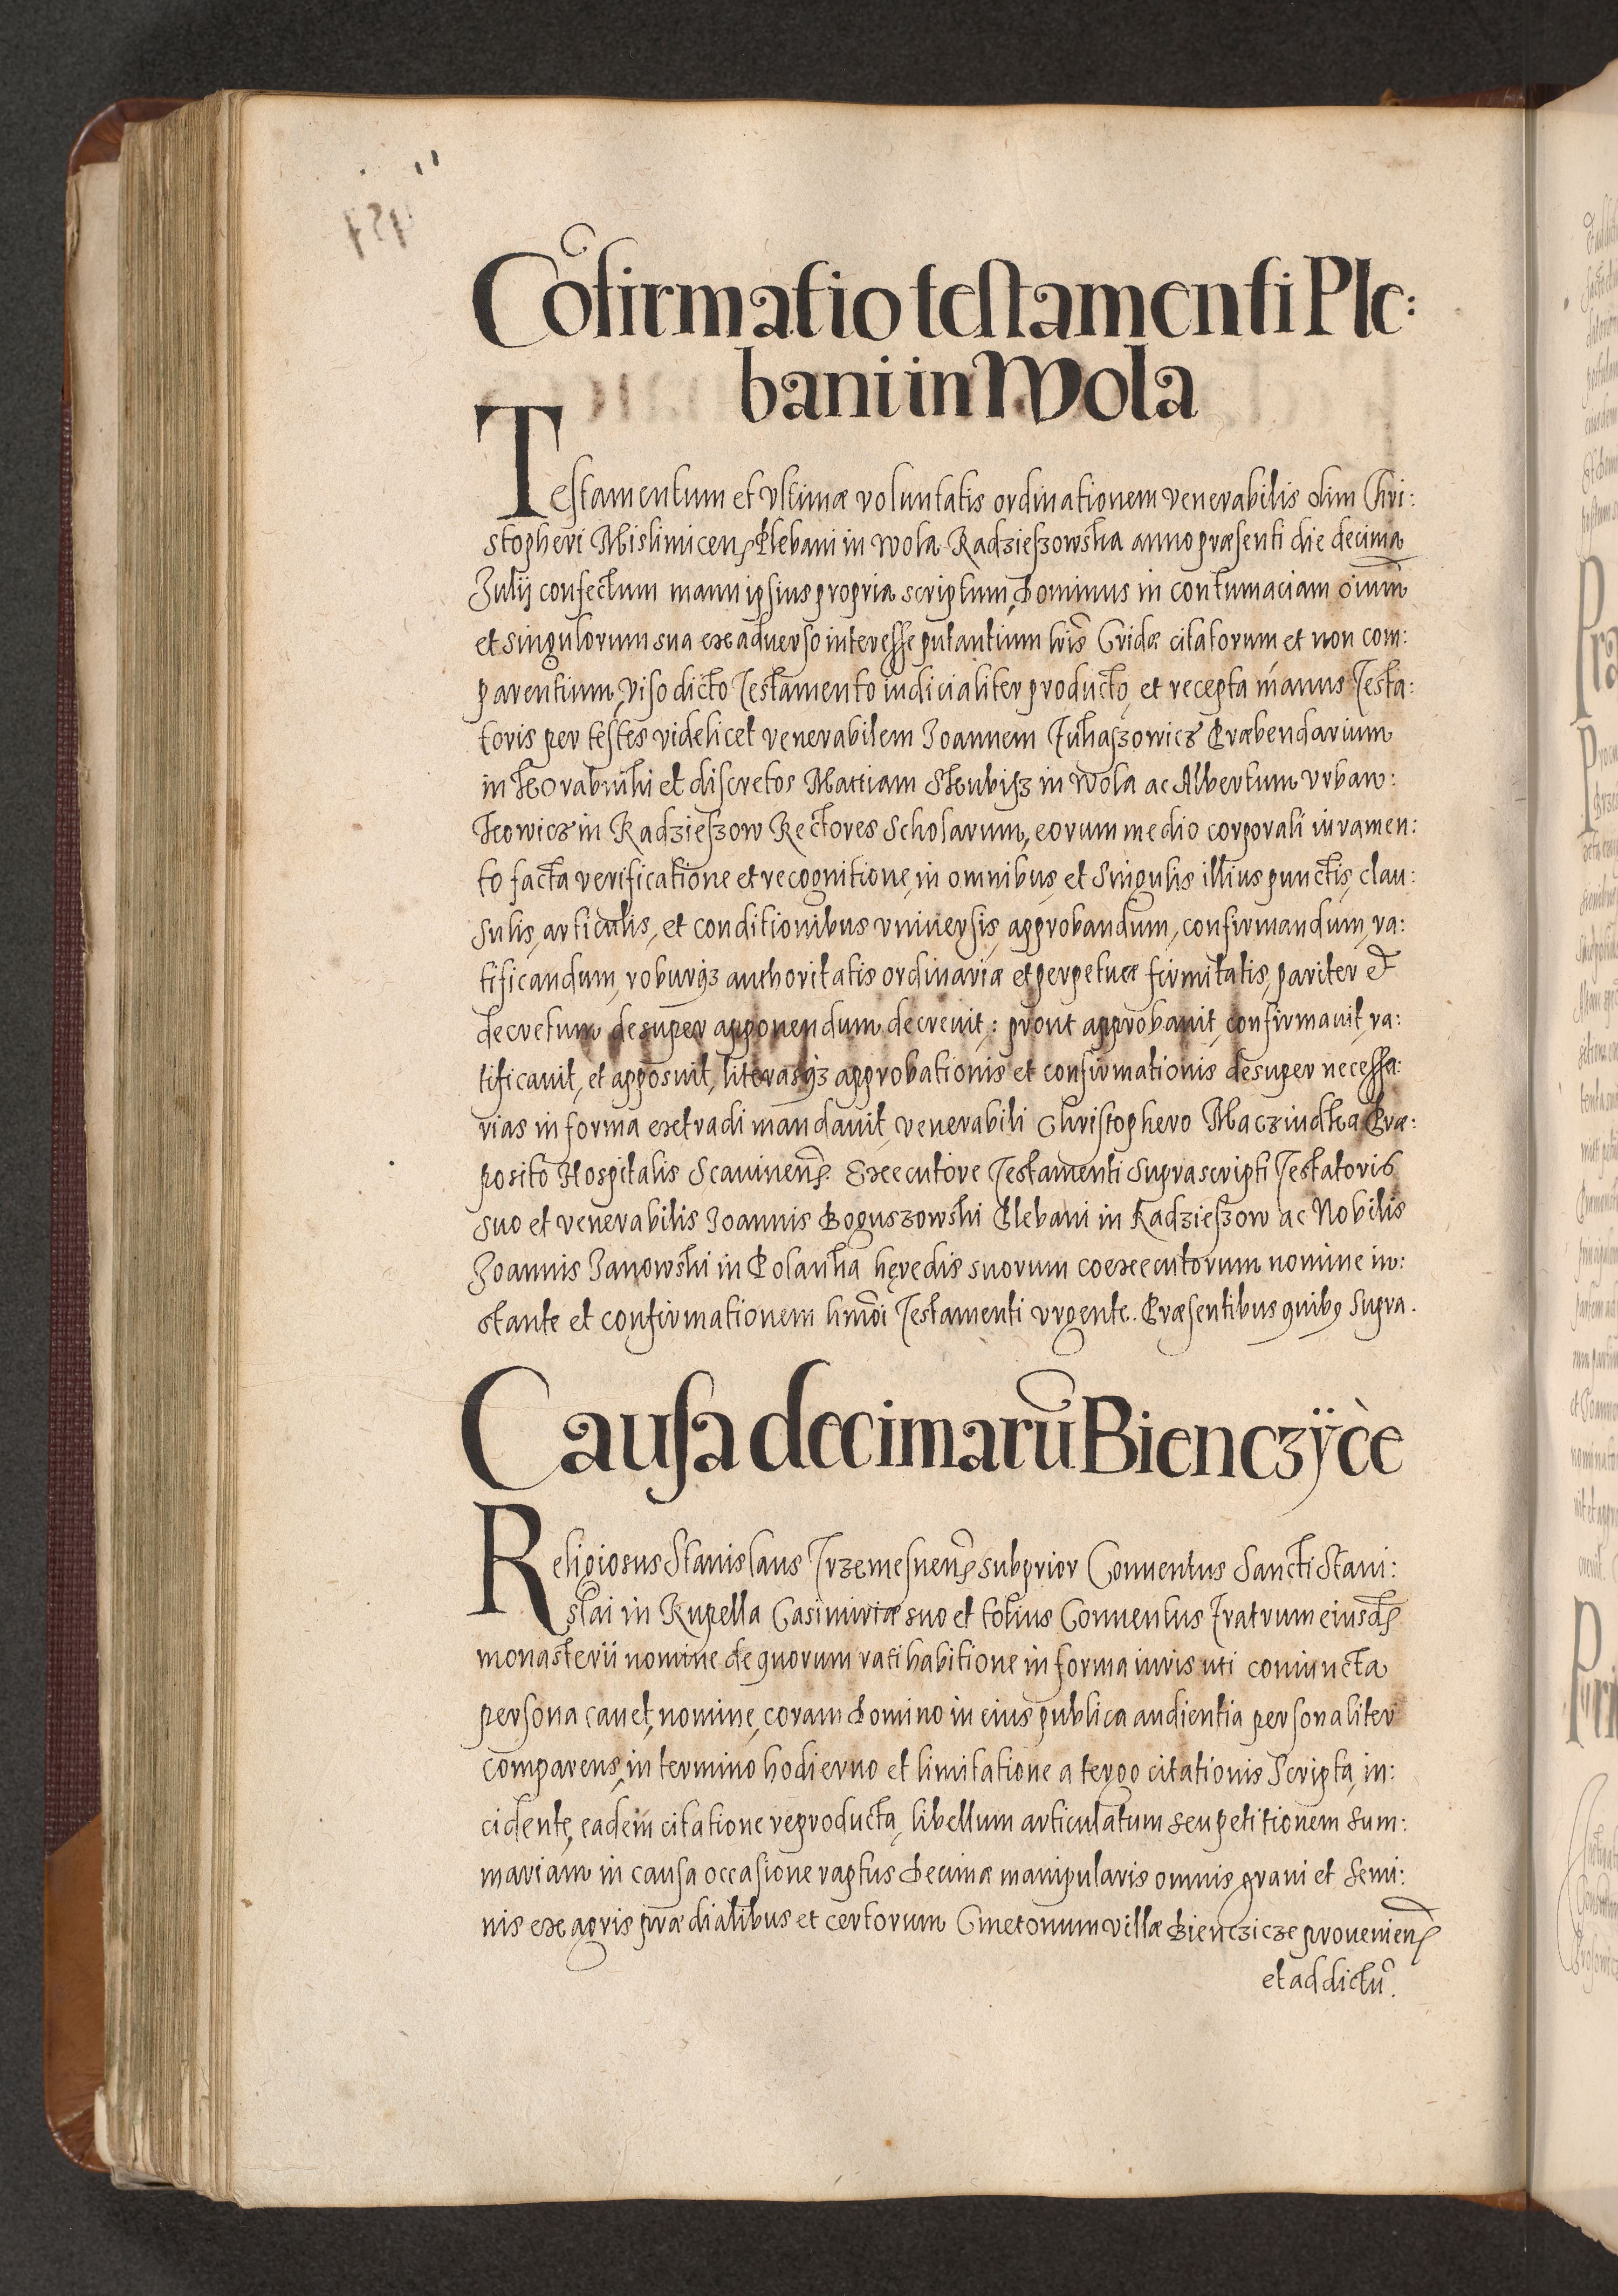 Cõfirmatio testamenti Ple:
bani in Wola
Testamentum et vltimæ voluntatis ordinationem venerabilis olim Chri:
stopheri Mislimicen̄ Plebani in Wola Radzieszowska anno præsenti die decima
Julij confectum manu ipsius propria scriptum, Dominus in contumaciam oīum
et singulorum sua ex aduerso interesse putantium lr̄is Cridæ citatorum et non com:
parentium, viso dicto Testamento iudicialiter producto, et recepta manus Testa:
toris per testes videlicet venerabilem Joannem Juhaszowicz Præbendarium
in Korabniki et discretos Mattiam Skubisz in Wola ac Albertum Vrban:
kowicz in Radzieszow Rectores Scholarum, eorum medio corporali iuramen:
to facta verificatione et recognitione, in omnibus, et singulis illius punctis, clau:
sulis, articulis, et conditionibus vniuersis, approbandum, confirmandum, ra:
tificandum, roburq3 authoritatis ordinariæ et perpetuæ firmitatis, pariter et
decretum desuper apponendum decreuit: prout approbauit, confirmauit, ra:
tificauit, et apposuit, literasq3 approbationis et confirmationis desuper necessa:
rias in forma extradi mandauit, venerabili Christophero Maczindka Præ:
posito Hospitalis Scauinen̄. Executore Testamenti suprascripti Testatoris
suo et venerabilis Joannis Boguszowski Plebani in Radzieszow ac Nobilis
Joannis Janowski in Polanka hęredis suorum coexecutorum nomine in:
stante et confirmationem hm̄oi Testamenti vrgente. Præsentibus quib9 supra.
Causa decimarū Bienczÿcè
Religiosus Stanislaus Trzemesnen̄ subprior Conuentus Sancti Stani:
slai in Rupella Casimiriæ suo et totius Conuentus Fratrum eiusd̄
monasterii nomine de quorum rati habitione in forma iuris uti coniuncta
persona cauet, nomine, coram Domino in eius publica audientia personaliter
comparens, in termino hodierno et limitatione a tergo citationis scripta, in:
cidente, eadem citatione reproducta, libellum articulatum seu petitionem sum:
mariam in causa occasione raptus Decimæ manipularis omnis grani et semi:
nis ex agris prædialibus et certorum Cmetonum villæ Bienczicze prouenien̄
et ad dictū.